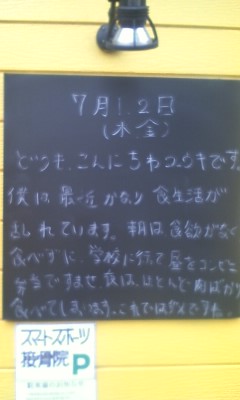 7月1.2日
(木金)
どうも、こんにちわユウキです。
僕は最近かなり食生活が
乱れています。朝は食欲がなく
食べずに、学校に行って昼をコンビニ
弁当ですませ、夜は、ほとんど肉ばかり
食べてしまいます。これではダメですね。
スマートスポーツ
接骨院 P